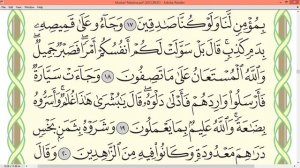 (SECURED) - Adobe Reader
بِمُؤْمِنٍ لَّنَا وَلَوْ كُنَّا صَٰدِقِينَ ١٧ وَجَآءُو عَلَىٰ قَمِيصِهِۦ
بِدَمٍ كَذِبٍ قَالَ بَلْ سَوَّلَتْ لَكُمْ أَنفُسُكُمْ أَمْرًا فَصَبْرٌ جَمِيلٌ
وَٱللَّهُ ٱلْمُسْتَعَانُ عَلَىٰ مَا تَصِفُونَ ١٨ وَجَآءَتْ سَيَّارَةٌ
فَأَرْسَلُوا۟ وَارِدَهُمْ فَأَدْلَىٰ دَلْوَهُۥ قَالَ يَٰبُشْرَىٰ هَٰذَا غُلَٰمٌ وَأَسَرُّوهُ
بِضَٰعَةً وَٱللَّهُ عَلِيمٌۢ بِمَا يَعْمَلُونَ ١٩ وَشَرَوْهُ بِثَمَنٍۭ بَخْسٍ
دَرَٰهِمَ مَعْدُودَةٍ وَكَانُوا۟ فِيهِ مِنَ ٱلزَّٰهِدِينَ ٢٠